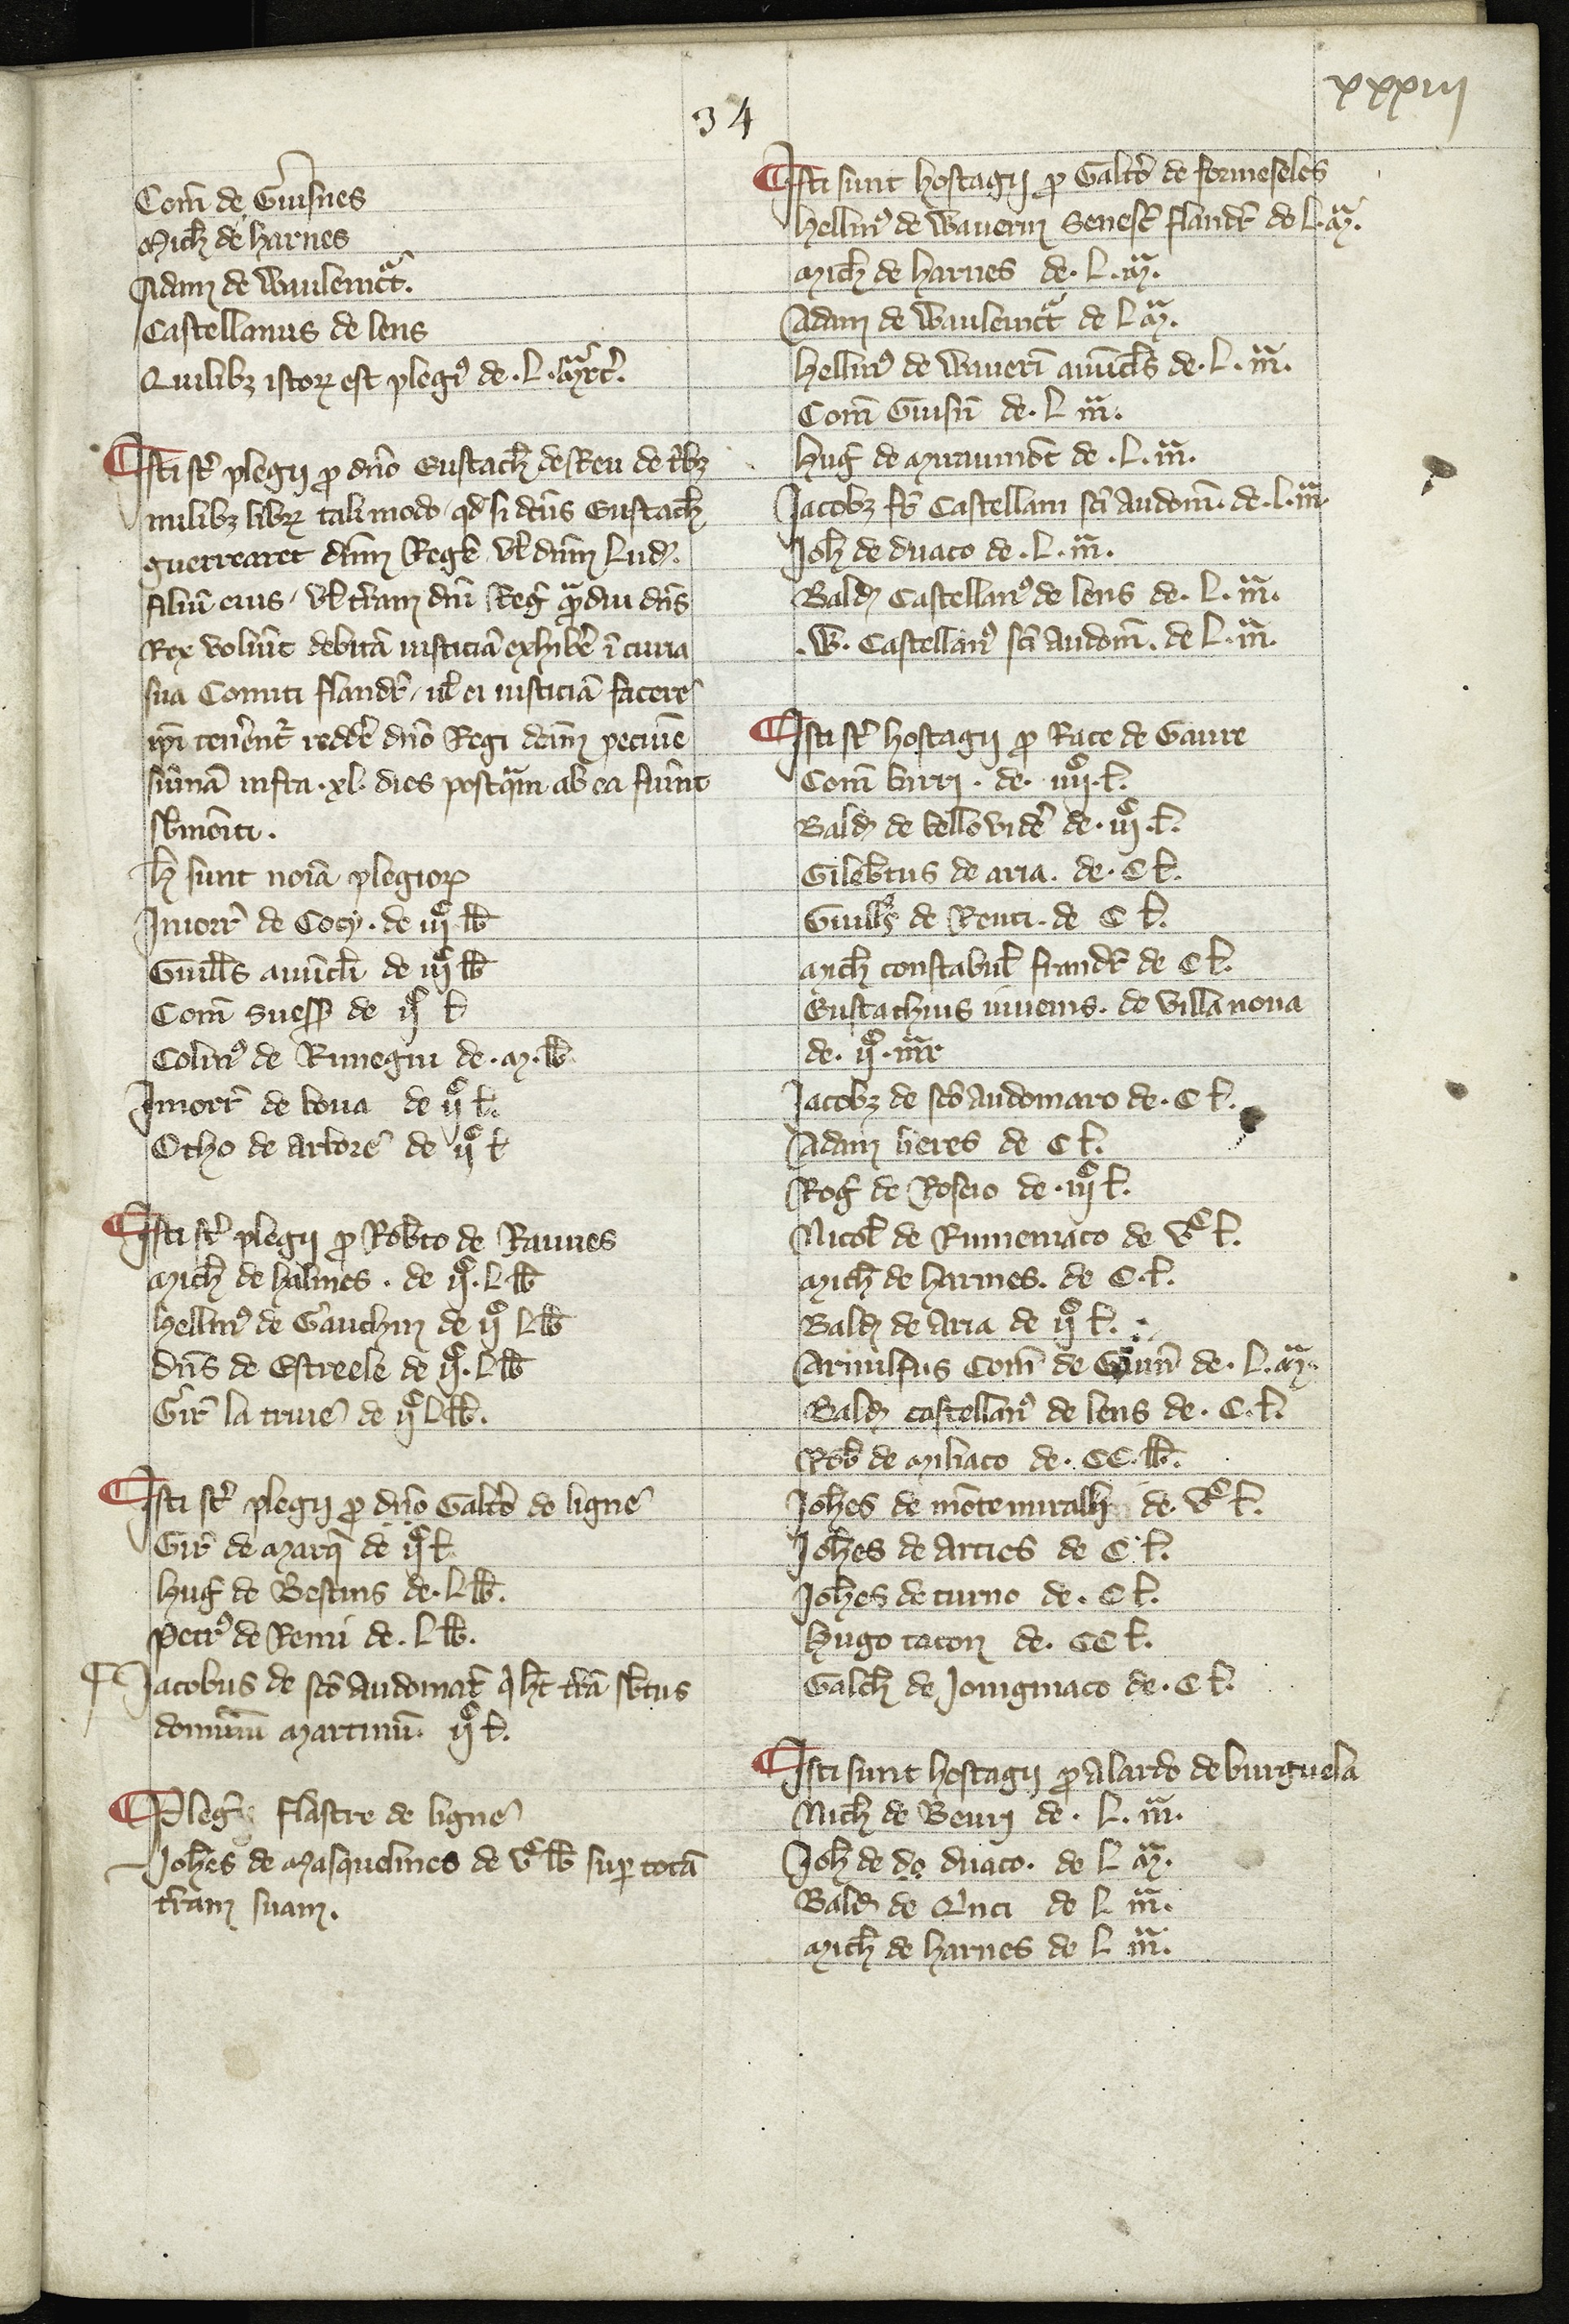 xxxiiij
34
Com̄ de Guisnes
Mich̄ de harnes
Adam de Waulemc̄t.
Castellanus de lens
Quilibꝫ istoꝝ est plegiꝰ de .L. marc̄.
Isti st̄ plegij ꝓ dn̄o Eustach̄ de Reu de tribꝫ
milibꝫ libꝝ tali modo qd̄ si dc̄us Eustach̄
guerrearet dn̄m Regē vl̄ dn̄m Lud.
filiū eius vl̄ tr̄am dn̄i Reḡ qᵃmdiu dn̄s
Rex voluīt debitā iusticiā exhibē ī curia
sua Comiti flandr̄ ul̄ ei iusticiā facere
ip̄i tenent̄ redde dn̄o Regi dc̄am pecunie
sūmā infra .xl. dies postqᵃm ab ea fuīnt
sb̄moniti.
h̄ sunt noīa plegioꝝ
Iniorr̄ de Cocy. de iijᶜ lb̄
Guill̄s auūcl̄i de iijᶜ lb̄
Com̄ Suess̄ de ijᶜ l̄
Colinꝰ de Rumegni de .M. lb̄
Iniorr̄ de boua de ijᶜ l̄.
Otho de Arbore de ijᶜ l̄
Isti st̄ plegij ꝓ Rob̄to de Rauues
Mich̄ de halmes . de ijᶜ. L lb̄
hellinꝰ de Gauchin de ijᶜ L lb̄
Dn̄s de Estreele de ijᶜ. L lb̄
Gir̄ la truie de ijᶜ L lb̄.
Isti st̄ plegij ꝓ dn̄o Galt̄o de ligne
Gir̄ de Marq̄ de ijᶜ l̄
hug̃ de Bestins de .L lb̄.
Petrꝰ de Remi de .L lb̄.
Jacobus de sc̄o Audomar̄ q̇ ht̄ tr̄a sb̄tus
domīnū Martinū. ijᶜ l̄.
Pleg̃ flastre de ligne
Joh̄es de Masquelines de vᶜ lb̄ suꝑ totā
tr̄am suam.
Isti sunt hostagij ꝓ Galt̄o de formeseles
hellinꝰ de Wauerin Senesc̄ flandr̄ de L. m̄.
Mich̄ de harnes de. L. m̄.
Adam de Waulemc̄t de L m̄.
hellinꝰ de Wauerī auūcl̄s de. L. m̄.
Com̄ Guisn̄ de. L m̄.
hug̃ de Miraumōt de .L. m̄.
Jacobꝫ fr̄ Castellani sc̄i Audom̄. de. L. m̄
Joh̄ de duaco de .L. m̄.
Bald̄ Castellanꝰ de lens de. L. m̄.
.W. Castellanꝰ sc̄i Audom̄. de L. m̄.
Isti st̄ hostagij ꝓ Race de Gaure
Com̄ birri . de . iiijᶜ. l̄.
Bald̄ de bello vidē de. iijᶜ. l̄.
Gileb̄tus de aria. de. C l̄.
Guill̄s de Renti. de C l̄.
Mich̄ constabul̄ frandr̄ de C l̄.
Eustachius iuuenis. de villa noua
de. ijᶜ. mr̄
Jacobꝫ de sc̄o Audomaro de. C l̄.
Adam lieres de C l̄.
Rog̃ de Roseio de. iijᶜ l̄.
Nicol̄ de Rumeniaco de vᶜ l̄.
Mich̄ de harmes. de C. l̄.
Bald̄ de Aria de ijᶜ l̄.
Arnulfus Com̄ de Guin̄ de. L. m̄.
Bald̄ castellanꝰ de lens de. C. l̄.
Rob̄ de Miliaco de. CC. lb̄.
Joh̄es de mōtemiralli de. vᶜ l̄.
Joh̄es de Arcies de C l̄.
Joh̄es de turno de. C l̄.
Hugo tacon de. CC l̄.
Galch̄ de Joingniaco de. C l̄.
Isti sunt hostagij ꝓ Alardo de burguela
Mich̄ de Beuri de . L. m̄.
Joh̄ de do duaco. de L m̄.
Bald̄ de Q̇nci de L m̄.
Mich̄ de harnes de L m̄.